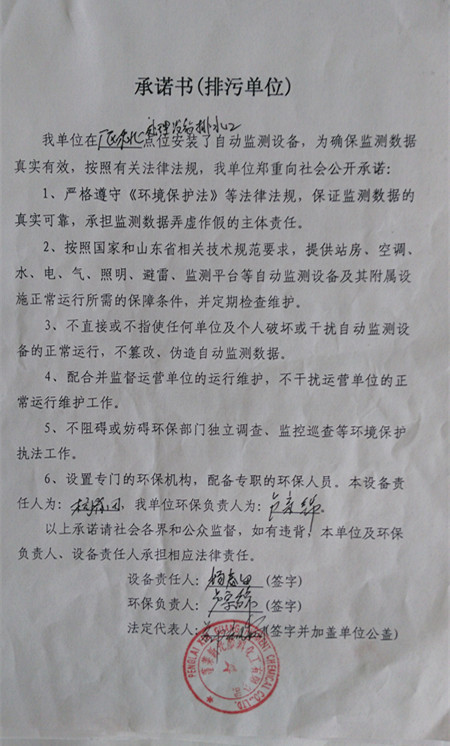 承诺书(排污单位)
处理设备排水口
我单位在 点位安装了自动监测设备，为确保监测数据
真实有效，按照有关法律法规，我单位郑重向社会公开承诺：
1、严格遵守《环境保护法》等法律法规，保证监测数据的
真实可靠，承担监测数据弄虚作假的主体责任。
2、按照国家和山东省相关技术规范要求，提供站房、空调、
水、电、气、照明、避雷、监测平台等自动监测设备及其附属设
施正常运行所需的保障条件，并定期检查维护。
3、不直接或不指使任何单位及个人破坏或干扰自动监测设
备的正常运行，不篡改、伪造自动监测数据。
4、配合并监督运营单位的运行维护，不干扰运营单位的正
常运行维护工作。
5、不阻碍或妨碍环保部门独立调查、监控巡查等环境保护
执法工作。
6、设置专门的环保机构，配备专职的环保人员。本设备责
任人为： ，我单位环保负责人为： 。
以上承诺请社会各界和公众监督，如有违背，本单位及环保
负责人、设备责任人承担相应法律责任。
设备责任人： (签字)
环保负责人： (签字)
法定代表人： (签字并加盖单位公盖)